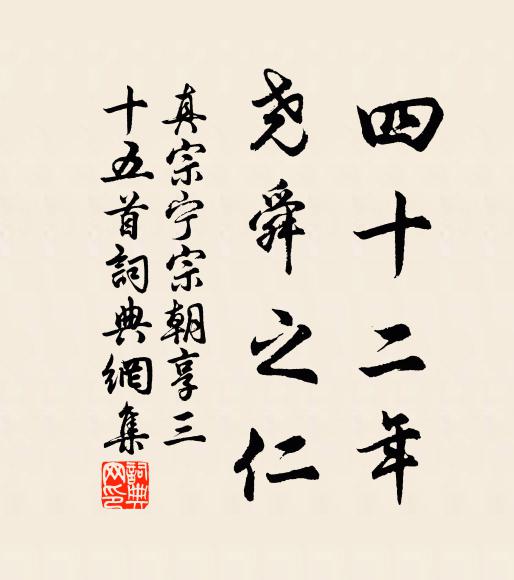 四十二年
尧舜之仁
真宗宁宗朝享三
十五首詞典網集
詞典
网印